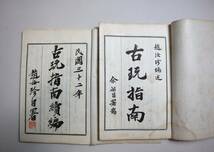 趙汝珍述
古玩指南
民國三十二年
古玩指南續編
趙汝珍自署